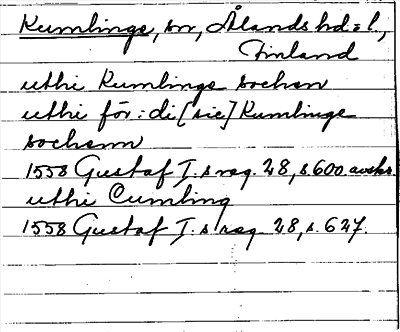 Kumlinge, sn, Ålands hd o l,
Finland
uthi Kumlinge sochen
uthi för: di [sic] Kumlinge
sochenn
1558 Gustaf I.s reg. 28, s. 600. avskr.
uthi Cumling
1558 Gustaf I.s reg. 28, s. 627.